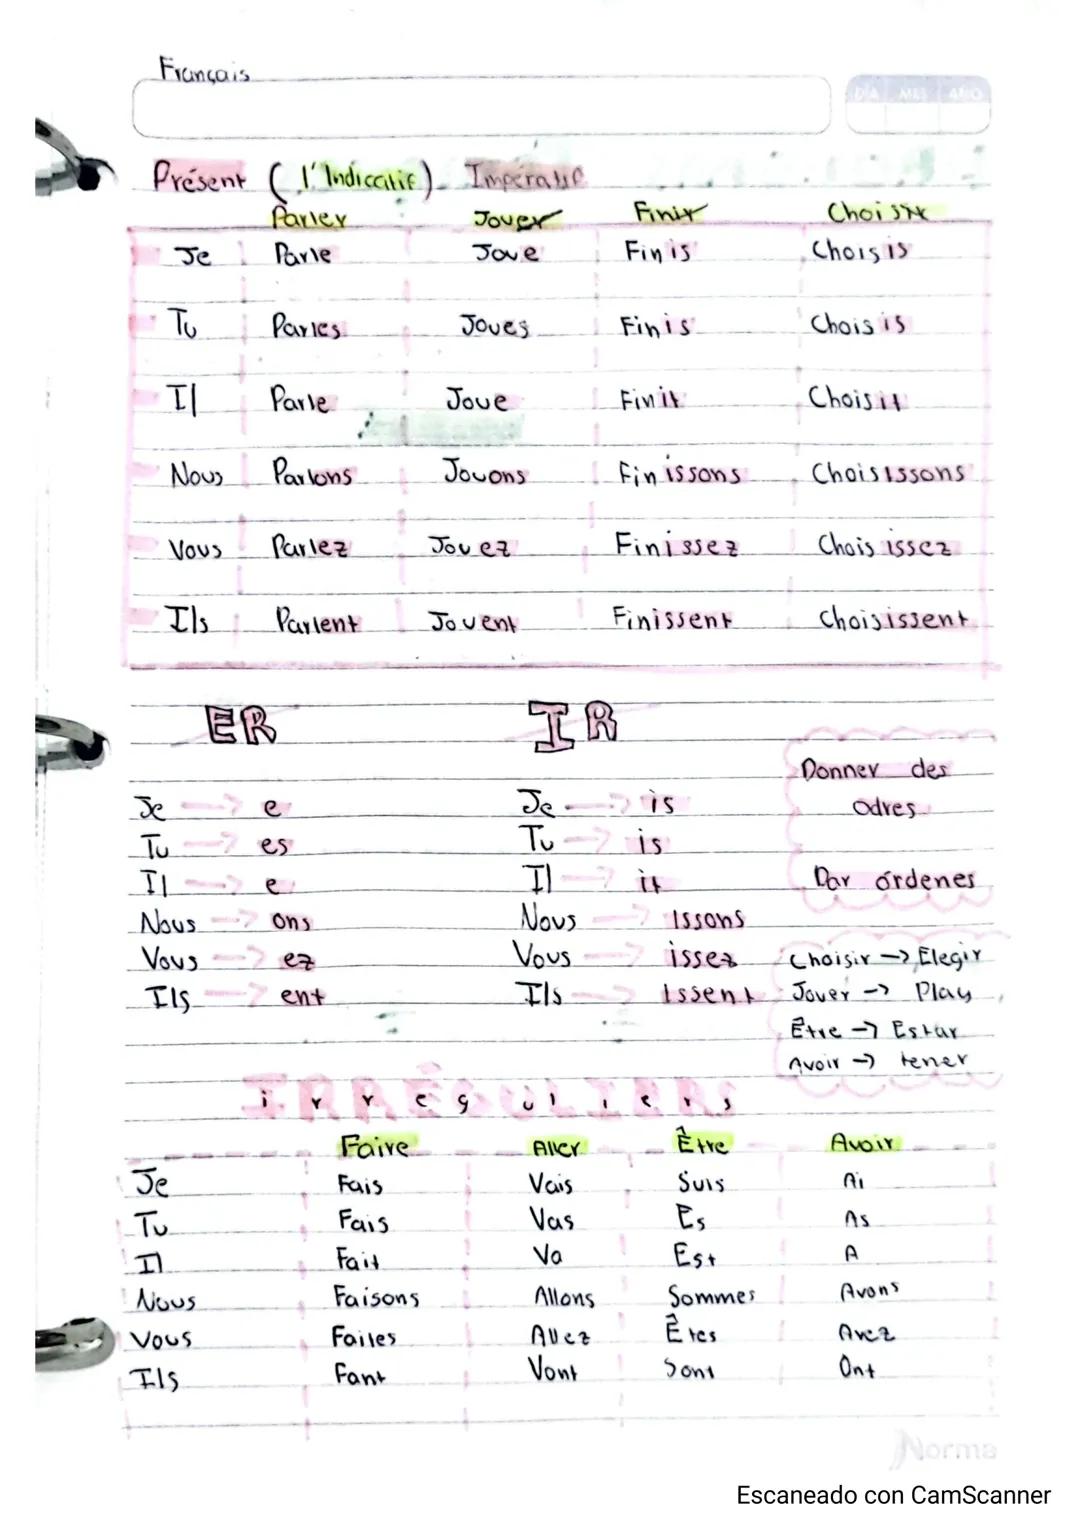 Français
DÍA MES AÑO
Présent ( l'Indicatif). Impératif
Parler Jouer Finir Choisir
Je Parle Joue Finis Choisis
Tu Parles Joues Finis Choisis
Il Parle Joue Finit Choisit
Nous Parlons Jouons Finissons Choisissons
Vous Parlez Jouez Finissez Choisissez
Ils Parlent Jouent Finissent Choisissent
ER IR
Donner des
Odres
Je → e Je → is
Tu → es Tu → is
Il → e Il → it Dar órdenes
Nous → ons Nous → issons
Vous → ez Vous → issez Choisir → Elegir
Ils → ent Ils → issent Jouer → Play
Être → Estar
Avoir → tener
IRRÉGULIERS
irréguliers
Faire Aller Être Avoir
Je Fais Vais Suis Ai
Tu Fais Vas Es As
Il Fait Va Est A
Nous Faisons Allons Sommes Avons
Vous Faites Allez Êtes Avez
Ils Font Vont Sont Ont
Norma
Escaneado con CamScanner